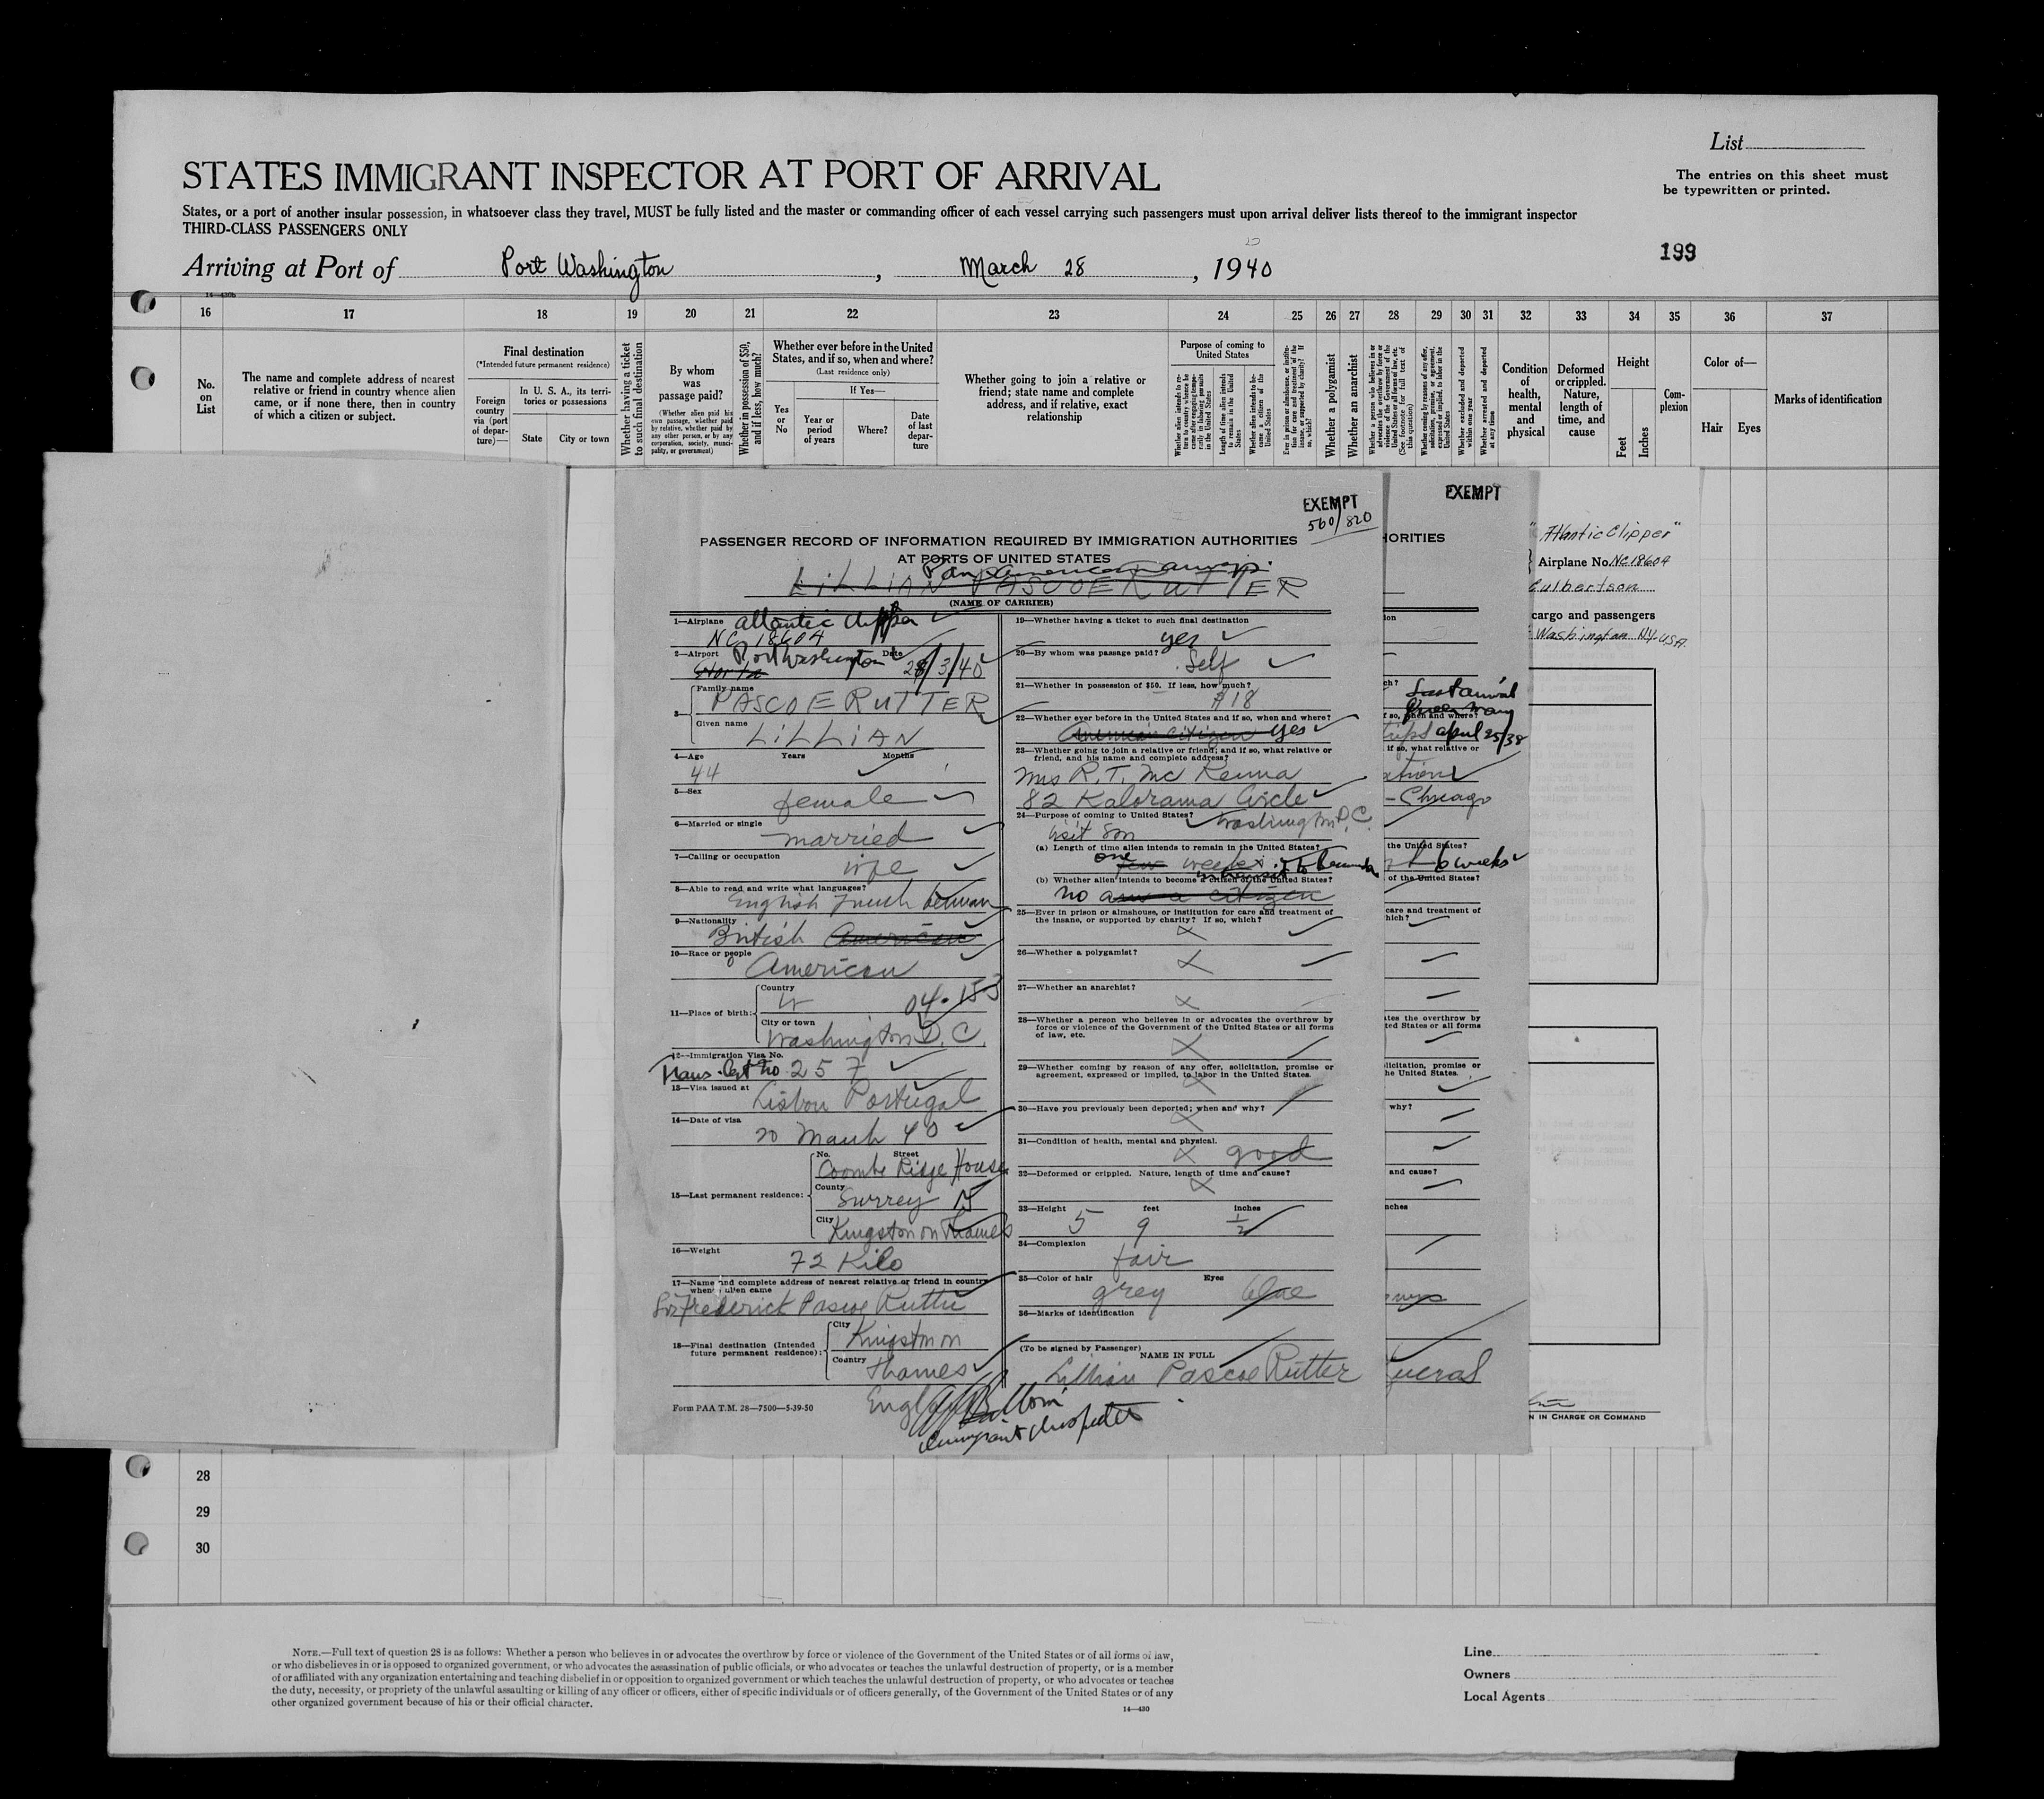 List
STATES IMMIGRANT INSPECTOR AT PORT OF ARRIVAL
The entries on this sheet must
be typewritten or printed.
States, or a port of another insular possession, in whatsoever class they travel, MUST be fully listed and the master or commanding officer of each vessel carrying such passengers must upon arrival deliver lists thereof to the immigrant inspector
THIRD-CLASS PASSENGERS ONLY
199
Arriving at Port of Port Washington, March 28, 1940
14-430b
16 17 18 19 20 21 22 23 24 25 26 27 28 29 30 31 32 33 34 35 36 37
No. on List
The name and complete address of nearest
relative or friend in country whence alien
came, or if none there, then in country
of which a citizen or subject.
Final destination
(*Intended future permanent residence)
Foreign country via (port of departure)—
In U. S. A., its territories or possessions
State
City or town
Whether having a ticket to such final destination
By whom was passage paid?
(Whether alien paid his own passage, whether paid by relative, whether paid by any other person, or by any corporation, society, municipality, or government)
Whether in possession of $50, and if less, how much?
Whether ever before in the United
States, and if so, when and where?
(Last residence only)
Yes or No
If Yes—
Year or period of years
Where?
Date of last departure
Whether going to join a relative or
friend; state name and complete
address, and if relative, exact
relationship
Purpose of coming to
United States
Whether a polygamist
Whether an anarchist
Condition of health, mental and physical
Deformed or crippled. Nature, length of time, and cause
Height
Feet
Inches
Complexion
Color of—
Hair
Eyes
Marks of identification
EXEMPT
560/820
PASSENGER RECORD OF INFORMATION REQUIRED BY IMMIGRATION AUTHORITIES
AT PORTS OF UNITED STATES
Pan American Airways.
LILLIAN PASCOE RUTTER
(NAME OF CARRIER)
1—Airplane Atlantic Clipper
NC 18604
2—Airport Port Washington Date 28/3/40
Horta
3— Family name
PASCOE RUTTER
Given name
LILLIAN
4—Age Years Months
44
5—Sex female
6—Married or single
married
7—Calling or occupation
wife
8—Able to read and write what languages?
English French German
9—Nationality
British American
10—Race or people
American
11—Place of birth:
Country
04-153
City or town
Washington D.C.
12—Immigration Visa No.
Trans. Cert No. 257
13—Visa issued at
Lisbon Portugal
14—Date of visa
20 March 40
15—Last permanent residence:
No. Street
Coombe Ridge House
County
Surrey
City
Kingston on Thames
16—Weight
72 Kilo
17—Name and complete address of nearest relative or friend in country
whence alien came
Sir Frederick Pascoe Rutter
18—Final destination (Intended
future permanent residence):
City
Kingston on
Country
Thames
England
Immigrant Inspector
Form PAA T.M. 28—7500—5-39-50
19—Whether having a ticket to such final destination
yes
20—By whom was passage paid?
Self
21—Whether in possession of $50. If less, how much?
$18
22—Whether ever before in the United States and if so, when and where?
American citizen yes
23—Whether going to join a relative or friend; and if so, what relative or
friend, and his name and complete address?
Mrs R. T. McKenna
82 Kalorama Circle
24—Purpose of coming to United States? Washington D.C.
visit son
(a) Length of time alien intends to remain in the United States?
one few weeks in transit to Bermuda
(b) Whether alien intends to become a citizen of the United States?
no am a citizen
25—Ever in prison or almshouse, or institution for care and treatment of
the insane, or supported by charity? If so, which?
x
26—Whether a polygamist?
x
27—Whether an anarchist?
x
28—Whether a person who believes in or advocates the overthrow by
force or violence of the Government of the United States or all forms
of law, etc.
x
29—Whether coming by reason of any offer, solicitation, promise or
agreement, expressed or implied, to labor in the United States.
x
30—Have you previously been deported; when and why?
x
31—Condition of health, mental and physical.
x good
32—Deformed or crippled. Nature, length of time and cause?
x
33—Height feet inches
5 9 1/2
34—Complexion
fair
35—Color of hair Eyes
grey blue
36—Marks of identification
(To be signed by Passenger)
NAME IN FULL
Lillian Pascoe Rutter
EXEMPT
HORITIES
ch? Last arrival
Queen Mary
if so, when and where?
trips april 25/38
if so, what relative or
- Chicago
the United States?
6 weeks
of the United States?
care and treatment of
hich?
tes the overthrow by
ted States or all forms
licitation, promise or
he United States.
why?
and cause?
nches
"Atlantic Clipper"
Airplane No. NC18604
Culbertson
cargo and passengers
Washington N.Y. U.S.A.
N IN CHARGE OR COMMAND
28
29
30
NOTE.—Full text of question 28 is as follows: Whether a person who believes in or advocates the overthrow by force or violence of the Government of the United States or of all forms of law,
or who disbelieves in or is opposed to organized government, or who advocates the assassination of public officials, or who advocates or teaches the unlawful destruction of property, or is a member
of or affiliated with any organization entertaining and teaching disbelief in or opposition to organized government or which teaches the unlawful destruction of property, or who advocates or teaches
the duty, necessity, or propriety of the unlawful assaulting or killing of any officer or officers, either of specific individuals or of officers generally, of the Government of the United States or of any
other organized government because of his or their official character.
14—430
Line
Owners
Local Agents